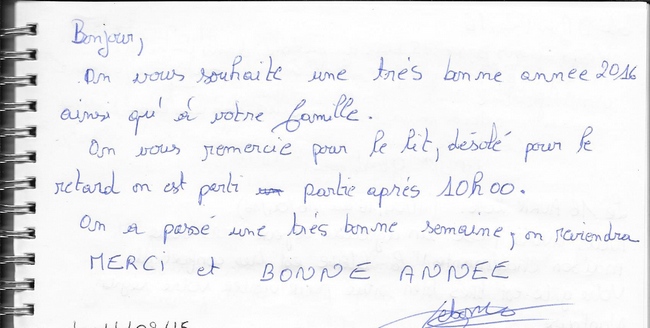 Bonjour,
On vous souhaite une trés bonne année 2016
ainsi qu'à votre famille.
On vous remercie pour le lit, désolé pour le
retard on est parti partie aprés 10h00.
On a passé une trés bonne semaine, on reviendra
MERCI et BONNE ANNEE